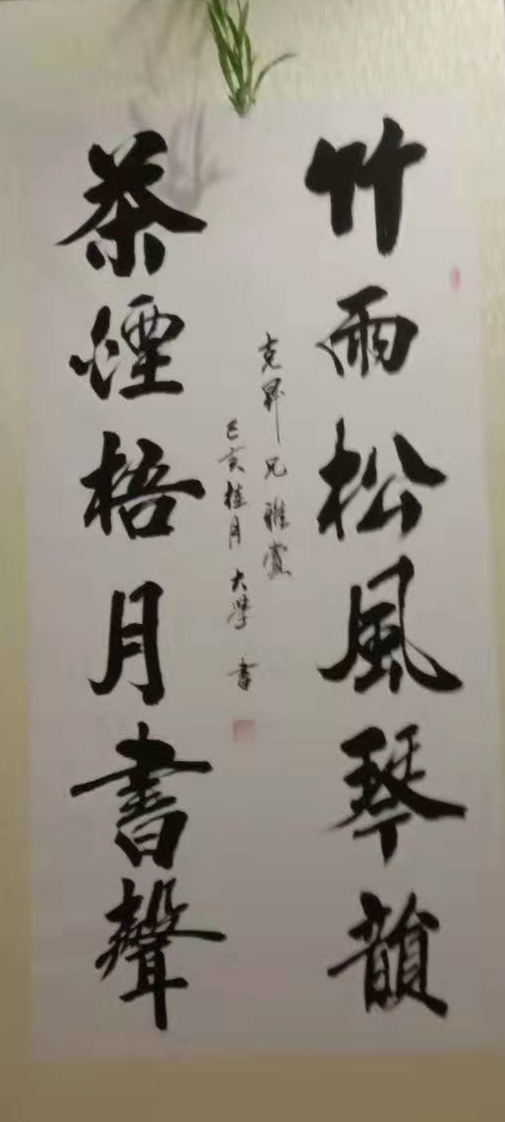 竹雨松風琴韻
茶煙梧月書聲
克昇兄雅賞
己亥桂月大學書